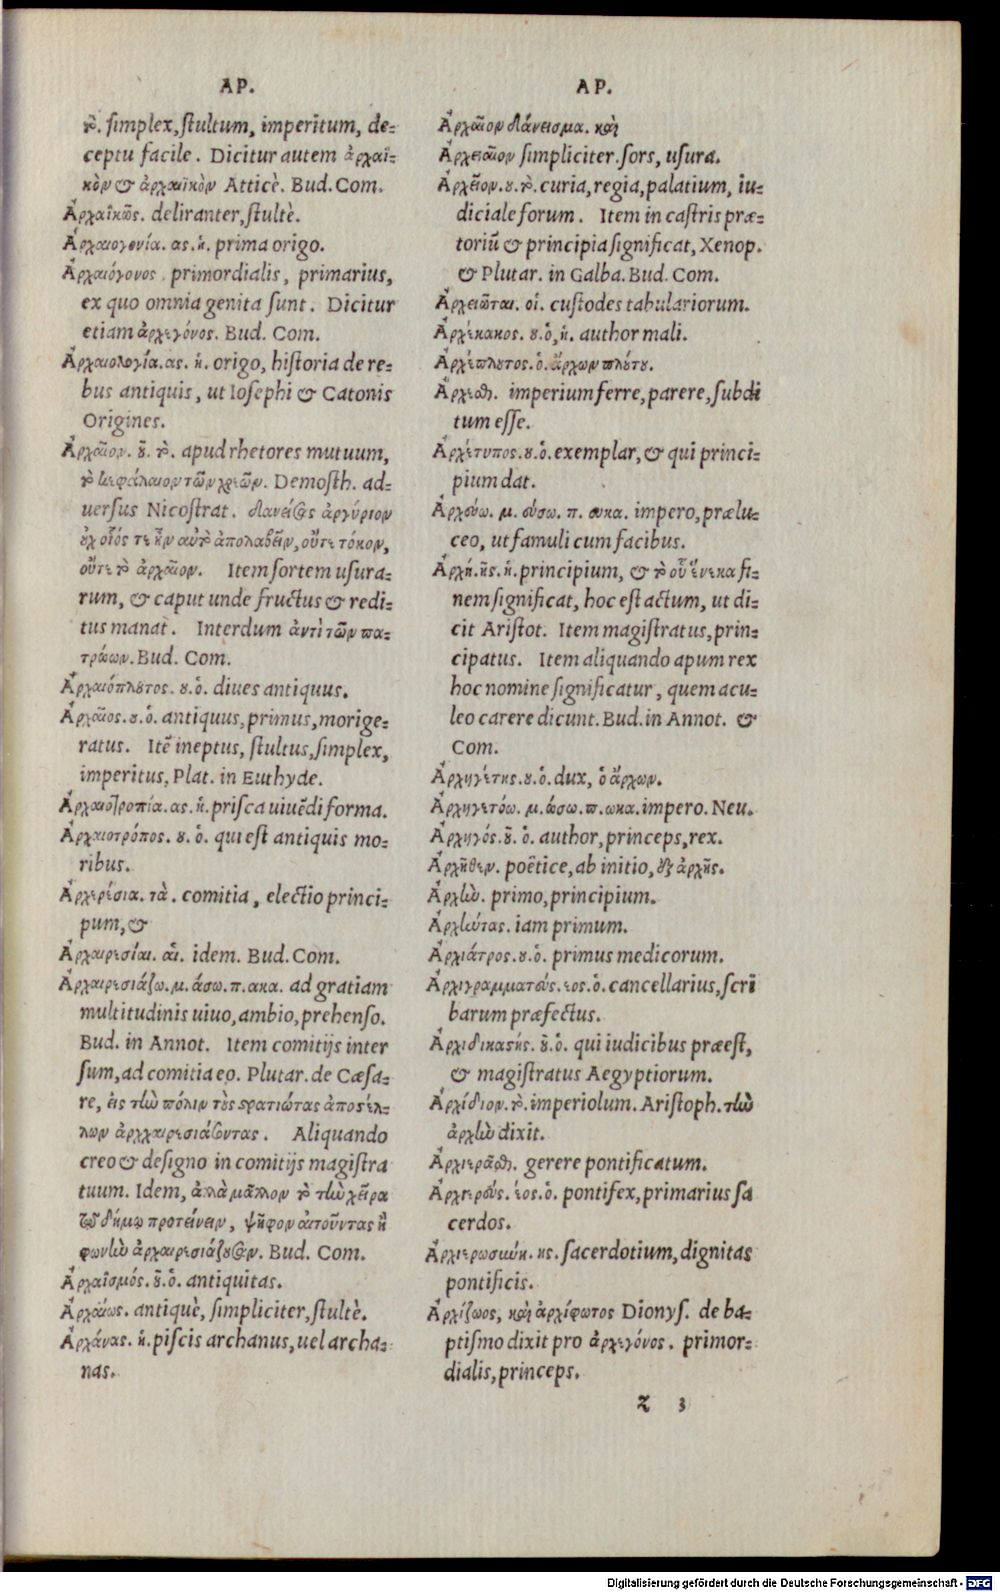 ΑΡ.
τὸ. simplex, stultum, imperitum, de-
ceptu facile. Dicitur autem ἀρχαϊ-
κὸν & ἀρχαιϊκὸν Atticè. Bud. Com.
Ἀρχαϊκῶς. deliranter, stultè.
Ἀρχαιογονία. ας. ἡ. prima origo.
Ἀρχαιόγονος. primordialis, primarius,
ex quo omnia genita sunt. Dicitur
etiam ἀρχεγόνος. Bud. Com.
Ἀρχαιολογία. ας. ἡ. origo, historia de re-
bus antiquis, ut Iosephi & Catonis
Origines.
Ἀρχαῖον. ου. τὸ. apud rhetores mutuum,
τὸ κεφάλαιον τῶν χρεῶν. Demosth. ad-
uersus Nicostrat. δανείσας ἀργύριον
οὐχ οἷός τε ἦν αὐτὸ ἀπολαβεῖν, οὔτε τόκον,
οὔτε τὸ ἀρχαῖον. Item sortem usura-
rum, & caput unde fructus & redi-
tus manat. Interdum ἀντὶ τῶν πα-
τρώων. Bud. Com.
Ἀρχαιόπλουτος. ου. ὁ. diues antiquus.
Ἀρχαῖος. ου. ὁ. antiquus, primus, morige-
ratus. Itē ineptus, stultus, simplex,
imperitus, Plat. in Euthyde.
Ἀρχαιοτροπία. ας. ἡ. prisca uiuēdi forma.
Ἀρχαιοτρόπος. ου. ὁ. qui est antiquis mo-
ribus.
Ἀρχερέσια. τὰ. comitia, electio princi-
pum, &
Ἀρχαιρεσίαι. αἱ. idem. Bud. Com.
Ἀρχαιρεσιάζω. μ. άσω. π. ακα. ad gratiam
multitudinis uiuo, ambio, prehenso.
Bud. in Annot. Item comitijs inter
sum, ad comitia eo. Plutar. de Cæsa-
re, εἰς τὴν πόλιν τοὺς στρατιώτας ἀποστέλ-
λων ἀρχαιρεσιάσοντας. Aliquando
creo & designo in comitijs magistra
tuum. Idem, ἀλλὰ μᾶλλον τὸ τὴν χεῖρα
τῷ δήμῳ προτείνειν, ψῆφον αἰτοῦντας ἢ
φωνὴν ἀρχαιρεσιάζουσαν. Bud. Com.
Ἀρχαϊσμός. οῦ. ὁ. antiquitas.
Ἀρχαίως. antiquè, simpliciter, stultè.
Ἀρχάνας. ἡ. piscis archanus, uel archa-
nas.
ΑΡ.
Ἀρχαῖον δάνεισμα. καὶ
Ἀρχειαῖον simpliciter. sors, usura.
Ἀρχεῖον. ου. τὸ. curia, regia, palatium, iu-
diciale forum. Item in castris præ-
toriū & principia significat, Xenop.
& Plutar. in Galba. Bud. Com.
Ἀρχειῶται. οἱ. custodes tabulariorum.
Ἀρχέκακος. ου. ὁ, ἡ. author mali.
Ἀρχέπλουτος. ὁ. ἄρχων πλούτου.
Ἄρχεσθαι. imperium ferre, parere, subdi
tum esse.
Ἀρχέτυπος. ου. ὁ. exemplar, & qui princi-
pium dat.
Ἀρχεύω. μ. εύσω. π. ευκα. impero, prælu-
ceo, ut famuli cum facibus.
Ἀρχή. ῆς. ἡ. principium, & τὸ οὗ ἕνεκα fi-
nem significat, hoc est actum, ut di-
cit Aristot. Item magistratus, prin-
cipatus. Item aliquando apum rex
hoc nomine significatur, quem acu-
leo carere dicunt. Bud. in Annot. &
Com.
Ἀρχηγέτης. ου. ὁ. dux, ὁ ἄρχων.
Ἀρχηγετόω. μ. ώσω. π. ωκα. impero. Neu.
Ἀρχηγός. οῦ. ὁ. author, princeps, rex.
Ἀρχῆθεν. poëtice, ab initio, ἐξ ἀρχῆς.
Ἀρχὴν. primo, principium.
Ἀρχιύτας. iam primum.
Ἀρχιάτρος. ου. ὁ. primus medicorum.
Ἀρχιγραμματεύς. εος. ὁ. cancellarius, scri
barum præfectus.
Ἀρχιδικαστής. οῦ. ὁ. qui iudicibus præest,
& magistratus Aegyptiorum.
Ἀρχίδιον. τὸ. imperiolum. Aristoph. τὴν
ἀρχὴν dixit.
Ἀρχιερᾶσθαι. gerere pontificatum.
Ἀρχιερεύς. έος. ὁ. pontifex, primarius sa
cerdos.
Ἀρχιερωσύνη. ης. sacerdotium, dignitas
pontificis.
Ἀρχίζωος, καὶ ἀρχίφωτος Dionys. de ba-
ptismo dixit pro ἀρχεγόνος. primor-
dialis, princeps.
z 3
Digitalisierung gefördert durch die Deutsche Forschungsgemeinschaft - DFG